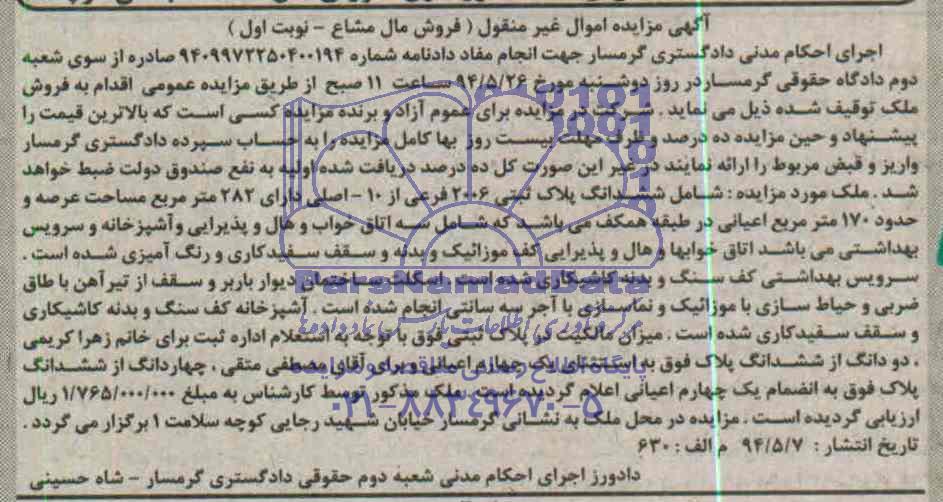 آگهی مزایده اموال غیر منقول ( فروش مال مشاع - نوبت اول )
اجرای احکام مدنی دادگستری گرمسار جهت انجام مفاد دادنامه شماره ۹۴۰۹۹۷۲۲۵۰۴۰۰۱۹۴ صادره از سوی شعبه
دوم دادگاه حقوقی گرمسار در روز دوشنبه مورخ ۹۴/۵/۲۶ ساعت ۱۱ صبح از طریق مزایده عمومی اقدام به فروش
ملک توقیف شده ذیل می نماید . شرکت در مزایده برای عموم آزاد و برنده مزایده کسی است که بالاترین قیمت را
پیشنهاد و حین مزایده ده درصد و ظرف مهلت بیست روز بها کامل مزایده را به حساب سپرده دادگستری گرمسار
واریز و قبض مربوط را ارائه نمایند در غیر این صورت کل ده درصد دریافت شده اولیه به نفع صندوق دولت ضبط خواهد
شد . ملک مورد مزایده : شامل ششدانگ پلاک ثبتی ۲۰۰۶ فرعی از ۱۰ - اصلی دارای ۲۸۲ متر مربع مساحت عرصه و
حدود ۱۷۰ متر مربع اعیانی در طبقه همکف می باشد که شامل سه اتاق خواب و هال و پذیرایی و آشپزخانه و سرویس
بهداشتی می باشد اتاق خوابها و هال و پذیرایی کف موزائیک و بدنه و سقف سفیدکاری و رنگ آمیزی شده است .
سرویس بهداشتی کف سنگ و بدنه کاشیکاری شده است . اسکلت ساختمان دیوار باربر و سقف از تیرآهن با طاق
ضربی و حیاط سازی با موزائیک و نماسازی با آجر سه سانتی انجام شده است . آشپزخانه کف سنگ و بدنه کاشیکاری
و سقف سفیدکاری شده است . میزان مالکیت در پلاک ثبتی فوق با توجه به استعلام اداره ثبت برای خانم زهرا کریمی
، دو دانگ از ششدانگ پلاک فوق به استثنای یک چهارم اعیانی و برای آقای مصطفی متقی ، چهاردانگ از ششدانگ
پلاک فوق به انضمام یک چهارم اعیانی اعلام گردیده است . ملک مذکور توسط کارشناس به مبلغ ۱/۷۶۵/۰۰۰/۰۰۰ ریال
ارزیابی گردیده است . مزایده در محل ملک به نشانی گرمسار خیابان شهید رجایی کوچه سلامت ۱ برگزار می گردد .
تاریخ انتشار : ۹۴/۵/۷ م الف : ۶۳۰
دادورز اجرای احکام مدنی شعبه دوم حقوقی دادگستری گرمسار - شاه حسینی
ParsNamadData
۰۲۱-۸۸۳۴۹۶۷۰-۵